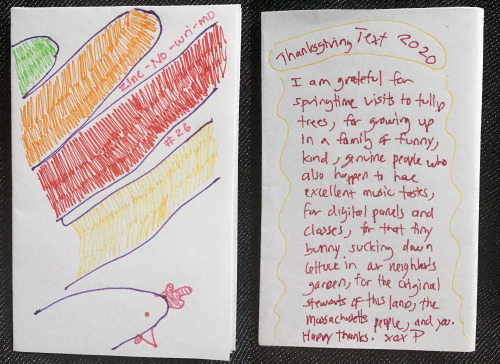 Zine-No-Wri-Mo
#26
Thanksgiving Text 2020
I am grateful for
springtime visits to tulip
trees, for growing up
in a family of funny,
kind, genuine people who
also happen to have
excellent music tastes,
for digital panels and
classes, for that tiny
bunny sucking down
lettuce in our neighbor's
garden, for the original
stewards of this land, the
Massachusetts people, and you.
Happy thanks. xox P